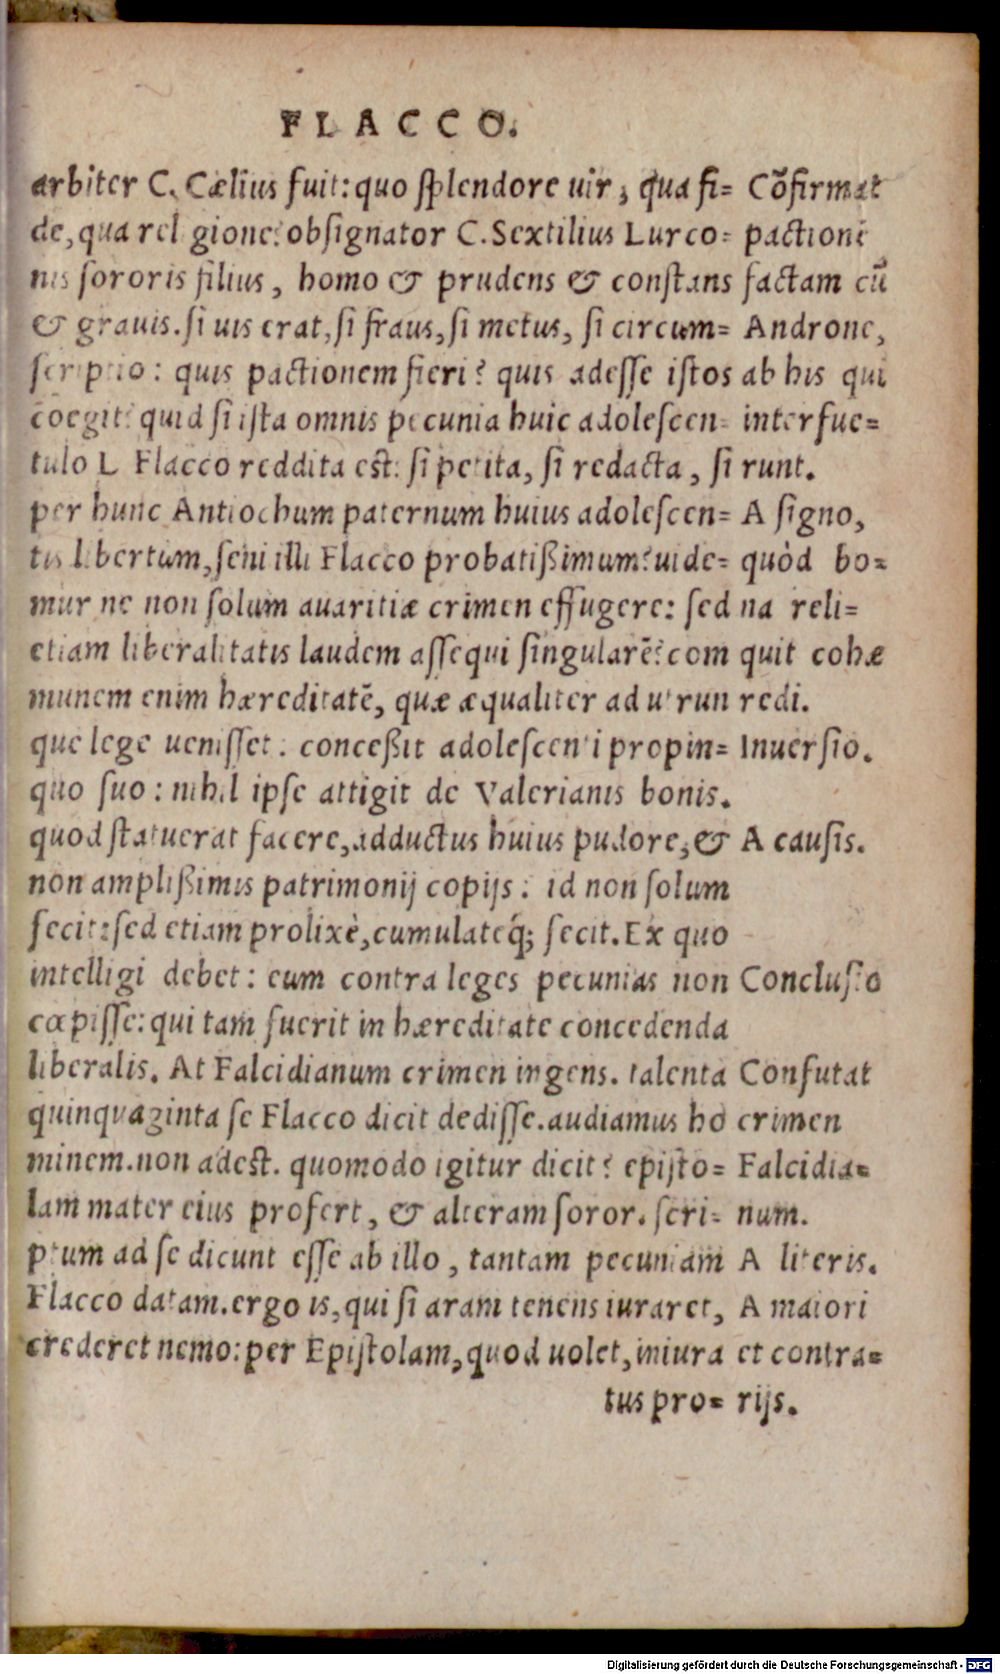 FLACCO.
arbiter C. Cælius fuit: quo splendore uir, qua fi=
de, qua religione? obsignator C. Sextilius Lurco=
nis sororis filius, homo & prudens & constans
& grauis. si uis erat, si fraus, si metus, si circum=
scriptio: quis pactionem fieri? quis adesse istos
coegit? quid si ista omnis pecunia huic adolescen=
tulo L. Flacco reddita est: si petita, si redacta, si
per hunc Antiochum paternum huius adolescen=
tis libertum, seni illi Flacco probatißimum? uide=
mur ne non solum auaritiæ crimen effugere: sed
etiam liberalitatis laudem assequi singularē? com
munem enim hæreditatē, quæ æqualiter ad utrun
que lege uenisset: conceßit adolescenti propin=
quo suo: nihil ipse attigit de Valerianis bonis.
quod statuerat facere, adductus huius pudore, &
non amplißimis patrimonij copijs: id non solum
fecit: sed etiam prolixè, cumulateq́; fecit. Ex quo
intelligi debet: eum contra leges pecunias non
cœpisse: qui tam fuerit in hæreditate concedenda
liberalis. At Falcidianum crimen ingens. talenta
quinquaginta se Flacco dicit dedisse. audiamus ho
minem. non adest. quomodo igitur dicit? episto=
lam mater eius profert, & alteram soror. scri=
ptum ad se dicunt esse ab illo, tantam pecuniam
Flacco datam. ergo is, qui si aram tenens iuraret,
crederet nemo: per Epistolam, quod uolet, iniura
tus pro=
Cōfirmat
pactionē
factam cū
Androne,
ab his qui
interfue=
runt.
A signo,
quòd bo=
na reli=
quit cohæ
redi.
Inuersio.
A causis.
Conclusio
Confutat
crimen
Falcidia=
num.
A literis.
A maiori
et contra=
rijs.
Digitalisierung gefördert durch die Deutsche Forschungsgemeinschaft - DFG